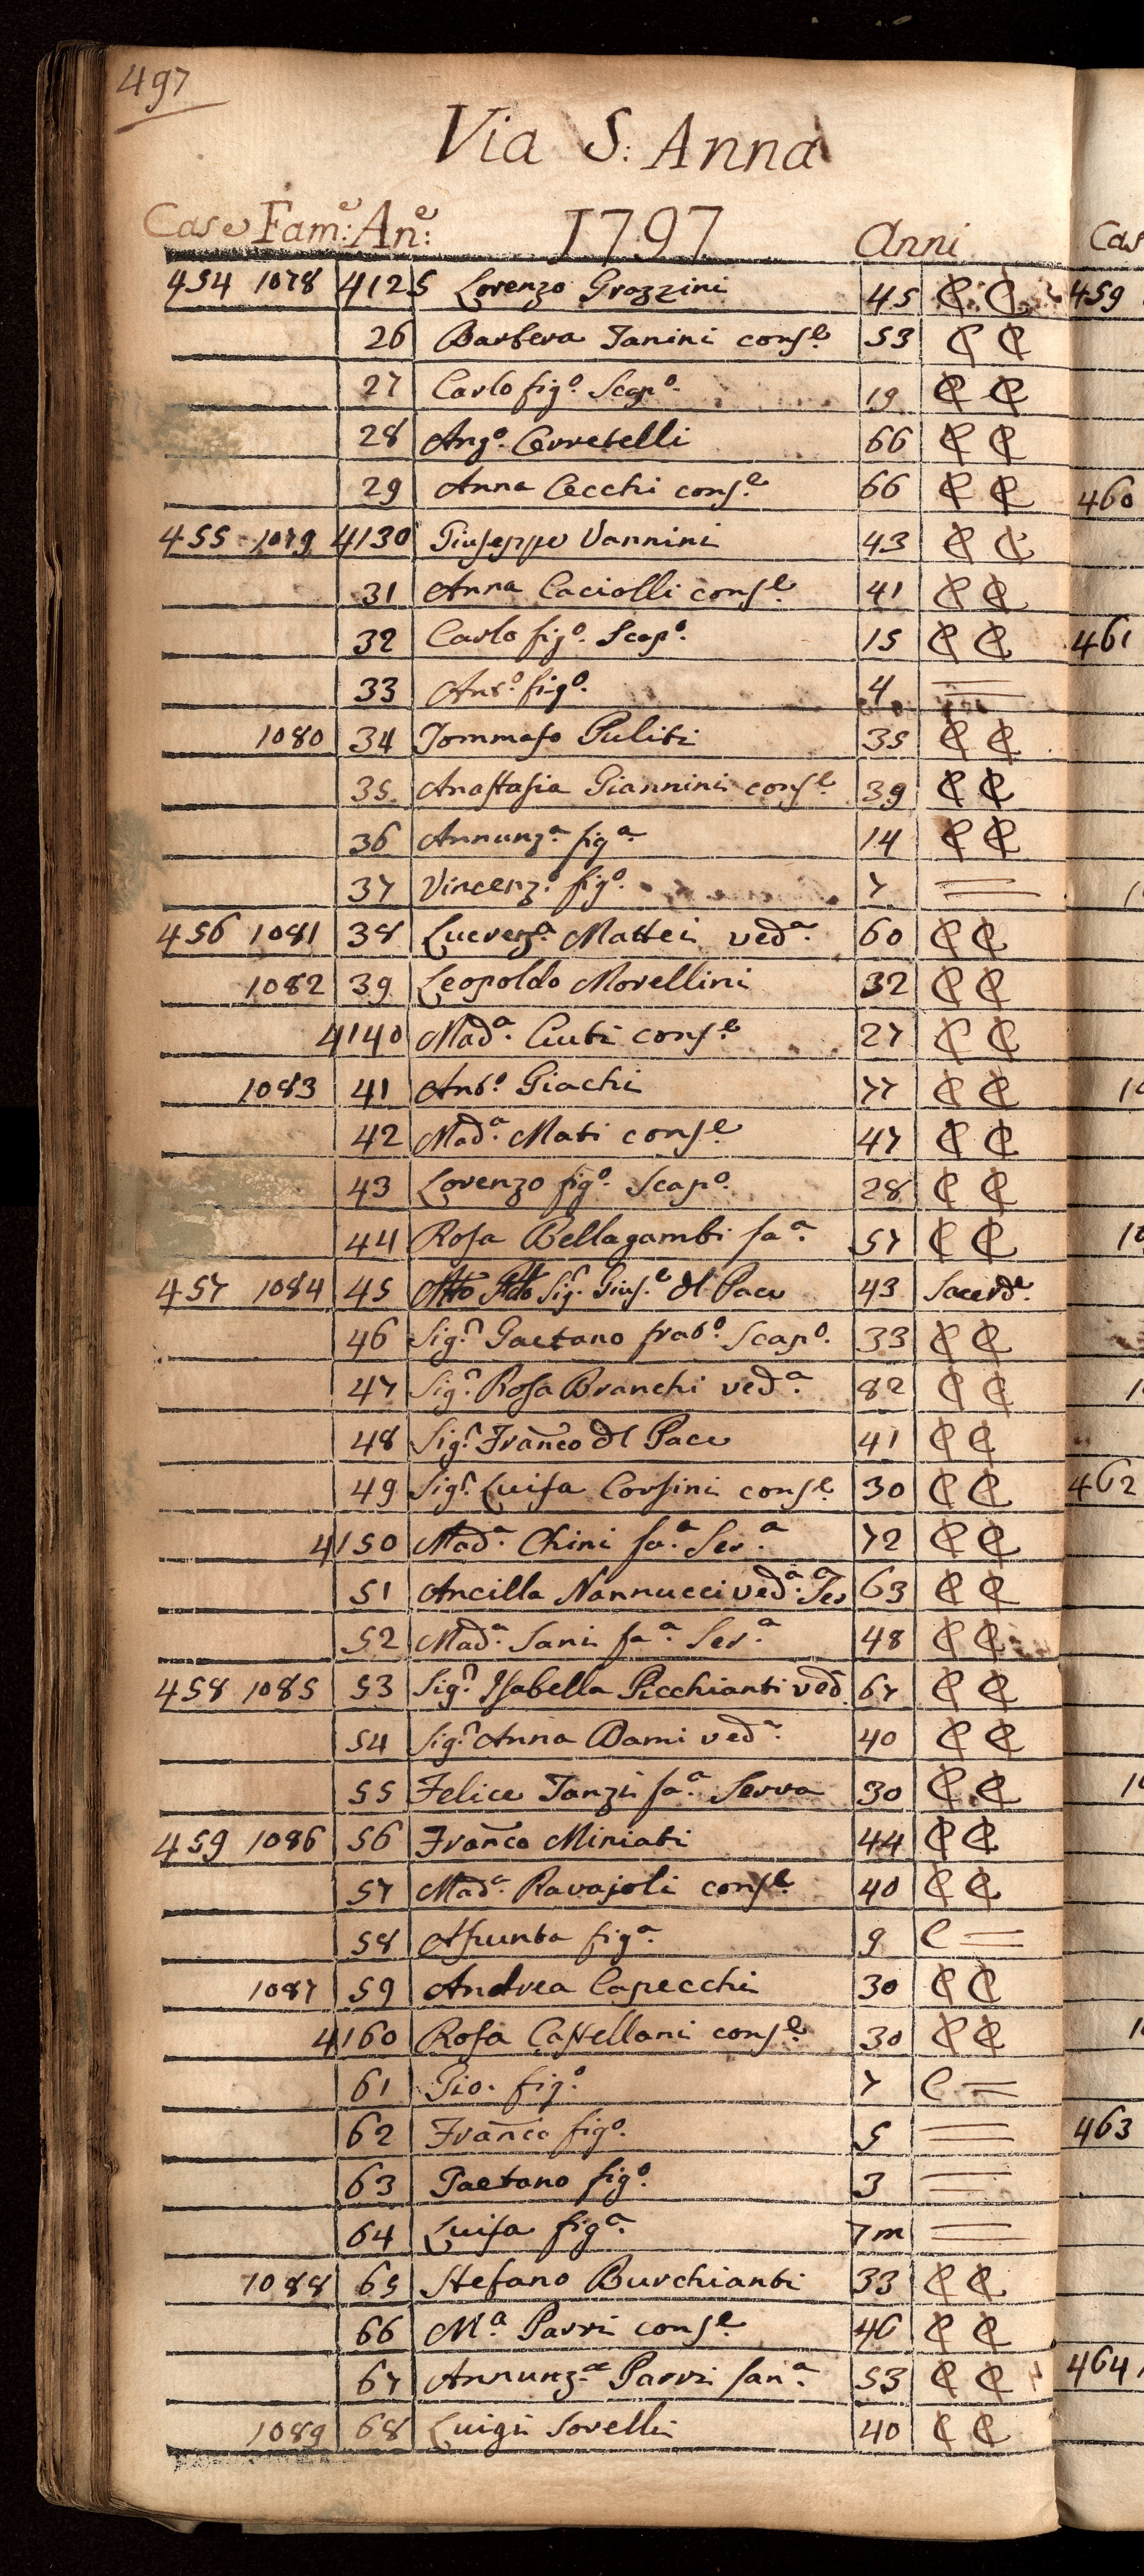 497
Via S: Anna
Case Fam:e An:e 1797 Anni
454 1078 4125 Lorenzo Grazzini 45 C C
26 Barbera Tanini cons.e 53 C C
27 Carlo fig.o Scap.o 19 C C
28 Ang.o Cerretelli 66 C C
29 Anna Cecchi cons.e 66 C C
455 1079 4130 Giuseppe Vannini 43 C C
31 Anna Caciolli cons.e 41 C C
32 Carlo fig.o Scap.o 15 C C
33 Ant.o fig.o 4 =
1080 34 Tommaso Puliti 35 C C
35 Anastasia Giannini cons.e 39 C C
36 Annunz.a fig.a 14 C C
37 Vincenz.o fig.o 7 =
456 1081 38 Lucrez.a Mattei ved.a 60 C C
1082 39 Leopoldo Morellini 32 C C
4140 Mad.a Ciuti cons.e 27 C C
1083 41 Ant.o Giachi 77 C C
42 Mad.a Mati cons.e 47 C C
43 Lorenzo fig.o Scap.o 28 C C
44 Rosa Bellagambi fa.a 57 C C
457 1084 45 Sig.r Gius.e dl Pace 43 Sacerd.e
46 Sig.r Gaetano frat.o Scap.o 33 C C
47 Sig.r Rosa Branchi ved.a 82 C C
48 Sig.r Franco dl Pace 41 C C
49 Sig.r Luisa Corsini cons.e 30 C C
4150 Mad.a Chini fa.a Ser.a 72 C C
51 Ancilla Nannucci ved.a Ser.a 63 C C
52 Mad.a Sani fa.a Ser.a 48 C C
458 1085 53 Sig.r Isabella Picchianti ved. 67 C C
54 Sig.r Anna Dami ved.a 40 C C
55 Felice Tanzi fa.a Serva 30 C C
459 1086 56 Franco Miniati 44 C C
57 Mad.a Ravajoli cons.e 40 C C
58 Assunta fig.a 9 C =
1087 59 Andrea Capecchi 30 C C
4160 Rosa Castellani cons.e 30 C C
61 Gio. fig.o 7 C =
62 Franco fig.o 5 =
63 Gaetano fig.o 3 =
64 Luisa fig.a 7m =
1088 65 Stefano Burchianti 33 C C
66 M.a Parri cons.e 46 C C
67 Annunz.a Parri fan.a 53 C C
1089 68 Luigi Sorelli 40 C C
Cas
459
460
461
462
463
464